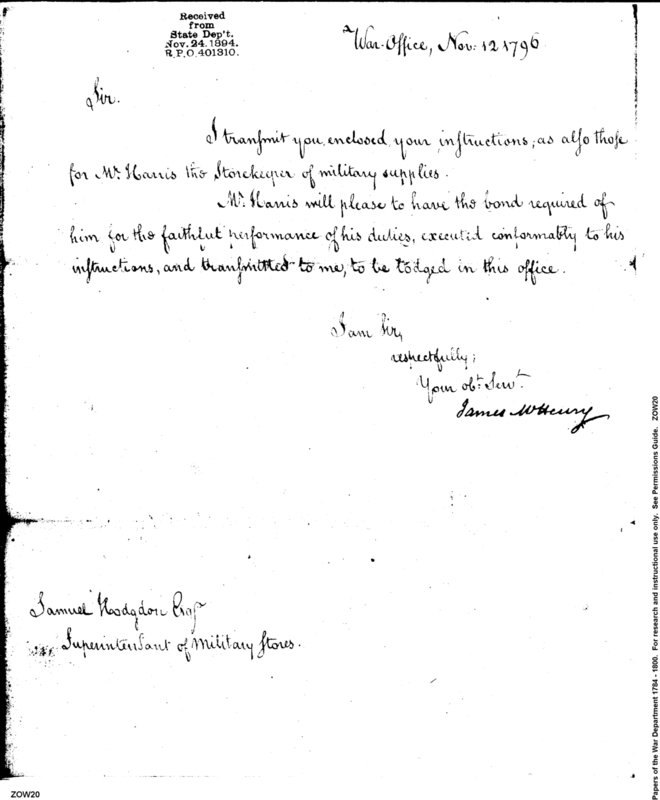 Received
from
State Dep't.
Nov. 24. 1894.
R.P.O. 401310.
War-Office, Nov: 12 1796
Sir.
I transmit you, enclosed, your instructions, as also those
for Mr. Harris the Storekeeper of military supplies.
Mr. Harris will please to have the bond required of
him for the faithful performance of his duties, executed conformably to his
instructions, and transmitted to me, to be lodged in this office.
I am Sir,
respectfully;
Your obt. Servt.
James McHenry
Samuel Hodgdon Esqr
Superintendant of Military Stores.
ZOW20
Papers of the War Department 1784 - 1800. For research and instructional use only. See Permissions Guide. ZOW20